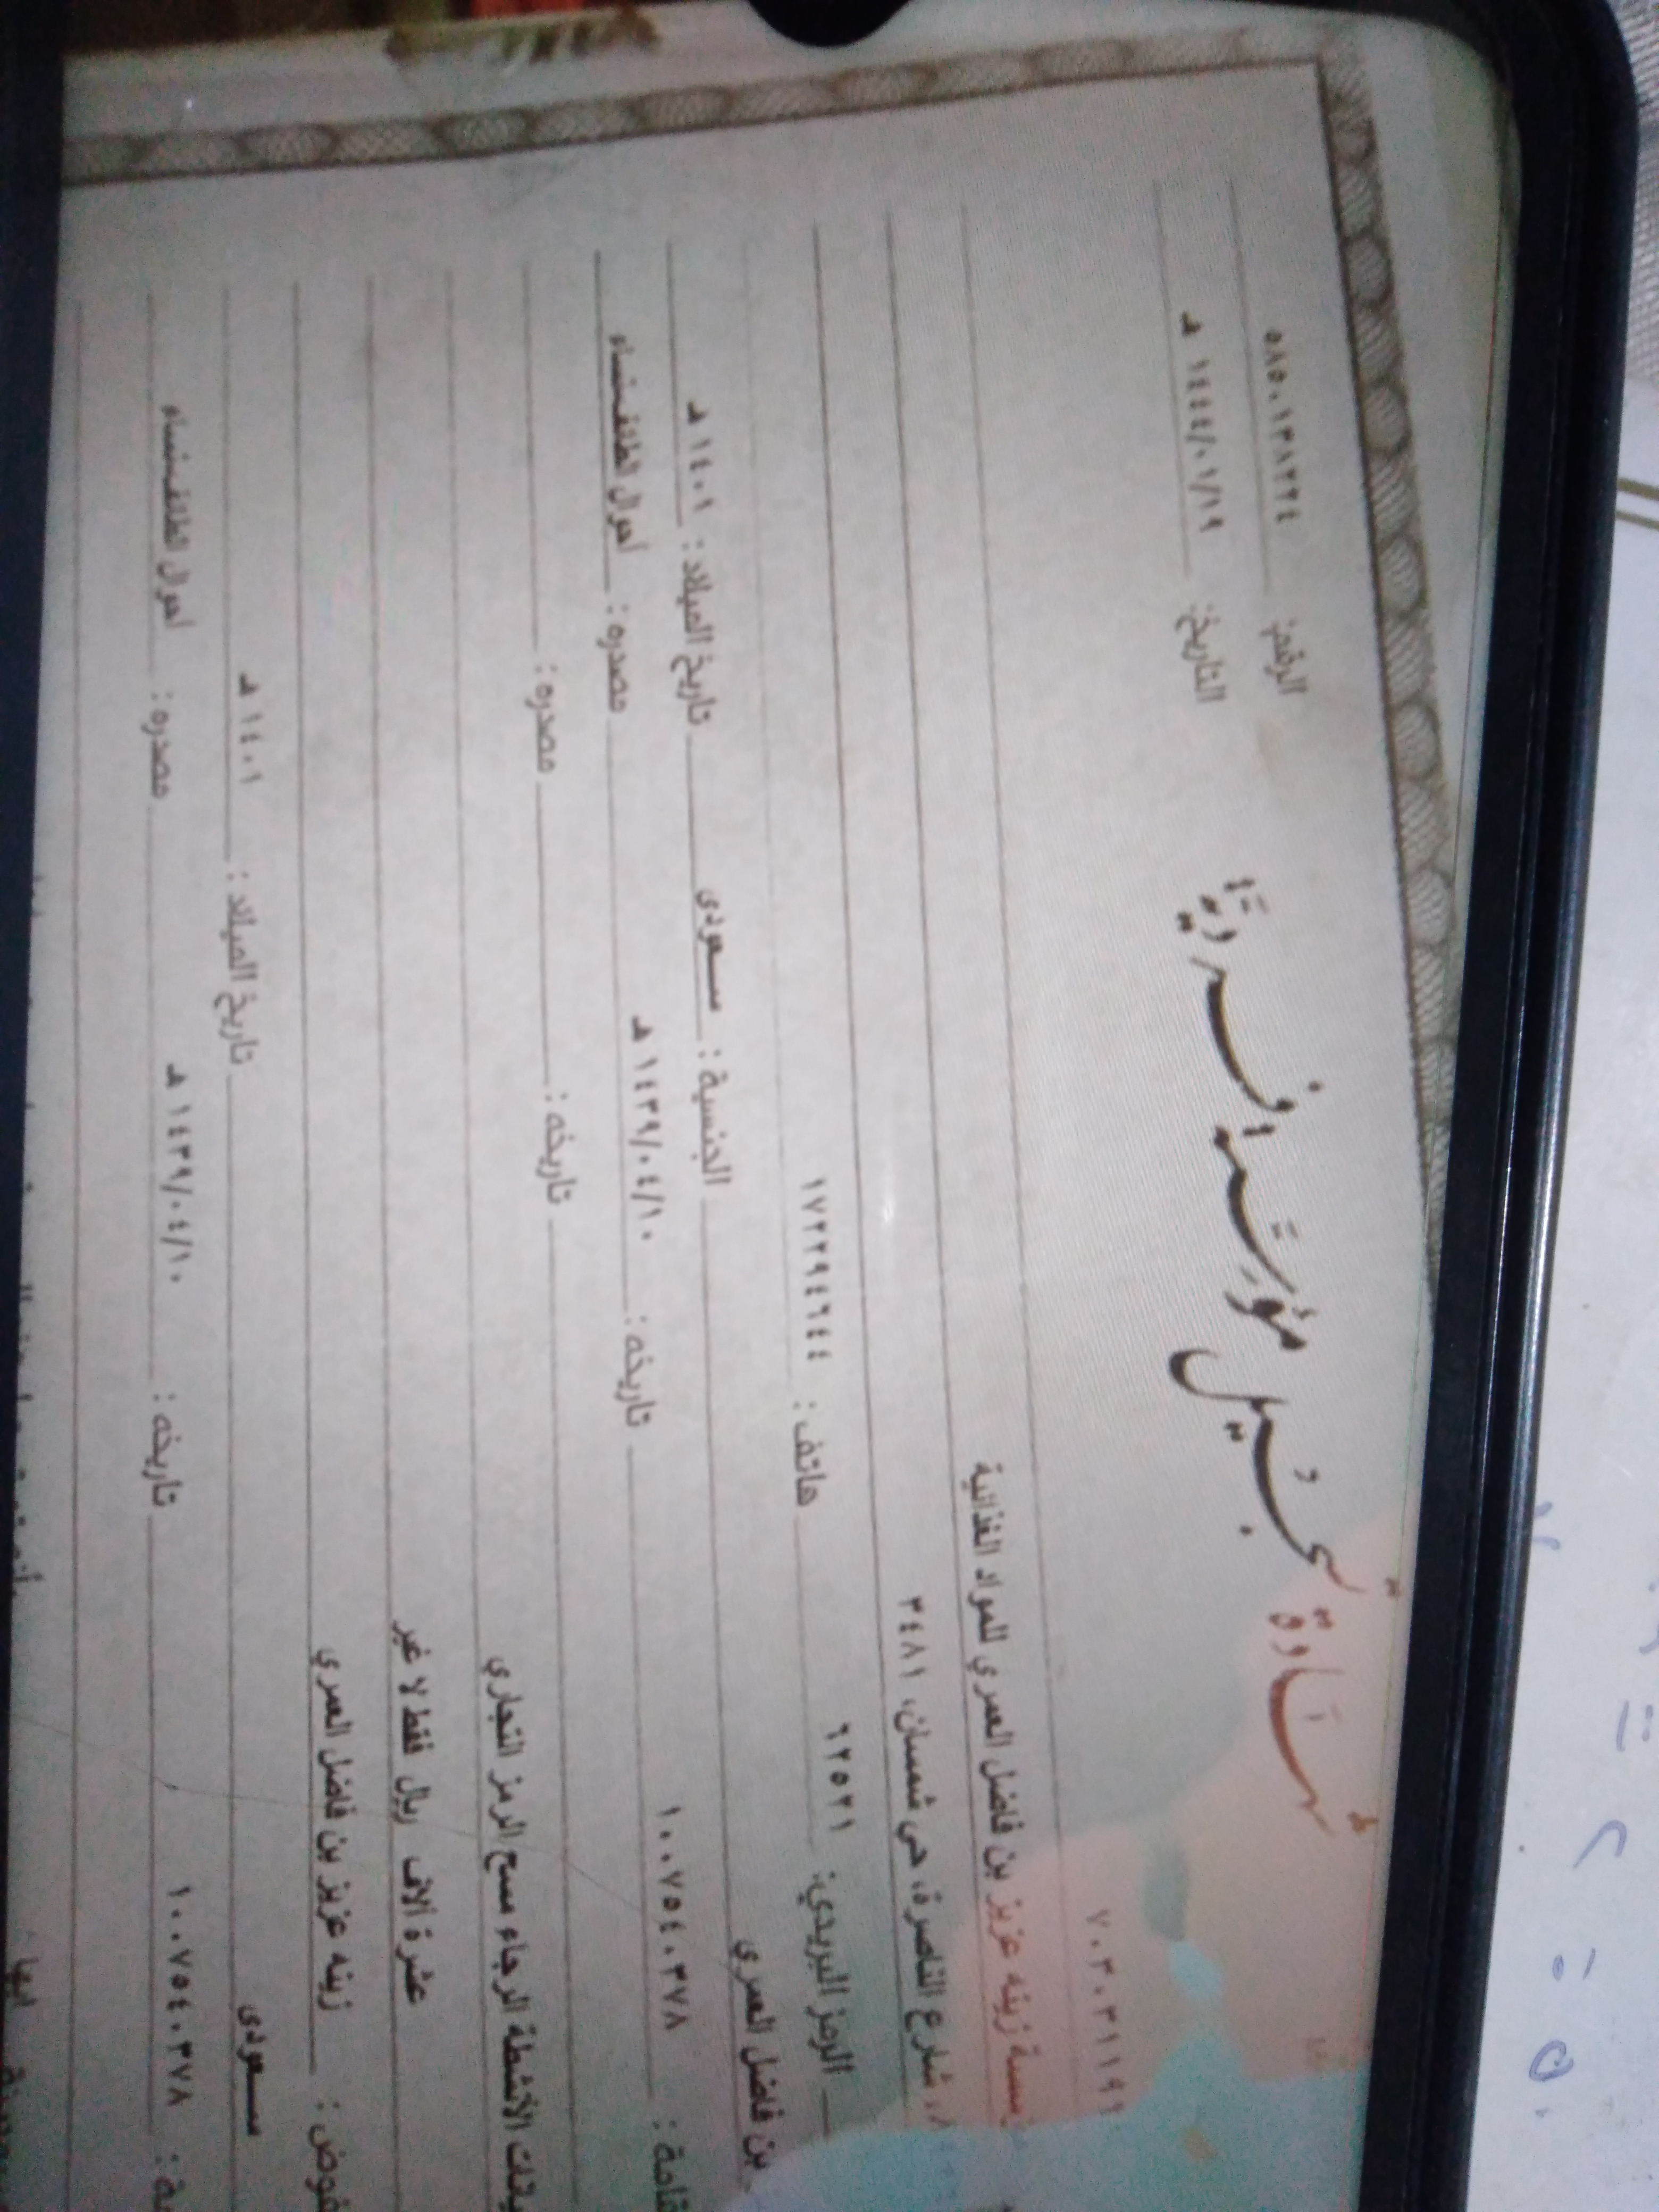 شهادة تسجيل مؤسسة فردية
الرقم: ٥٨٥٠١٣٨٢٢٤
التاريخ: ١٤٤٤/٠١/١٩ هـ
٧٠٣٠٣١١٩٩
زينه عزيز بن فاضل العمري للمواد الغذائية
شارع الناصرة، حي شمسان، ٣٤٨١
الرمز البريدي: ٦٢٥٢١ هاتف: ١٧٢٢٩٤٦٤٤
بن فاضل العمري
الجنسية: سعودى تاريخ الميلاد: ١٤٠١ هـ
١٠٠٧٥٤٠٣٧٨ تاريخه: ١٤٣٩/٠٤/١٠ هـ مصدره: أحوال الطائف-نساء
تاريخه: مصدره:
الأنشطة الرجاء مسح الرمز التجاري
عشرة آلاف ريال فقط لا غير
زينه عزيز بن فاضل العمري
سعودى تاريخ الميلاد: ١٤٠١ هـ
١٠٠٧٥٤٠٣٧٨ تاريخه: ١٤٣٩/٠٤/١٠ هـ مصدره: أحوال الطائف-نساء
ابها